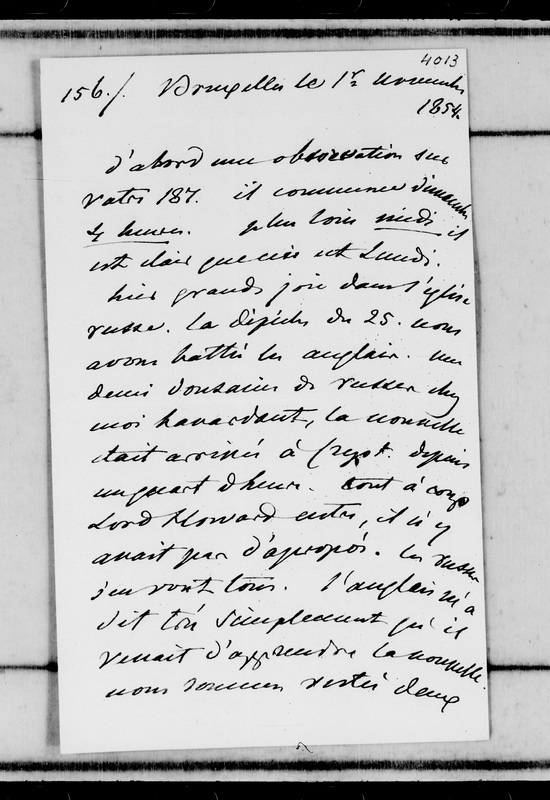 4013
156./. Bruxelles le 1er novembre
1854.
d'abord une observation sur
votre 187. il commence dimanche
4 heures. plus loin midi il
est clair que ceci est Lundi.
hier grande joie dans l'église
russe. la dépêche du 25. nous
avons battu les anglais. une
demi douzaine de russes chez
moi bavardant, la nouvelle
était arrivée à depuis
un quart d'heure. tout à coup
Lord Howard entre, il n'y
avait pas d'apropos. les russes
s'en vont tous. l'anglais m'a
dit très simplement qu'il
venait d'apprendre la nouvelle.
nous sommes restés deux